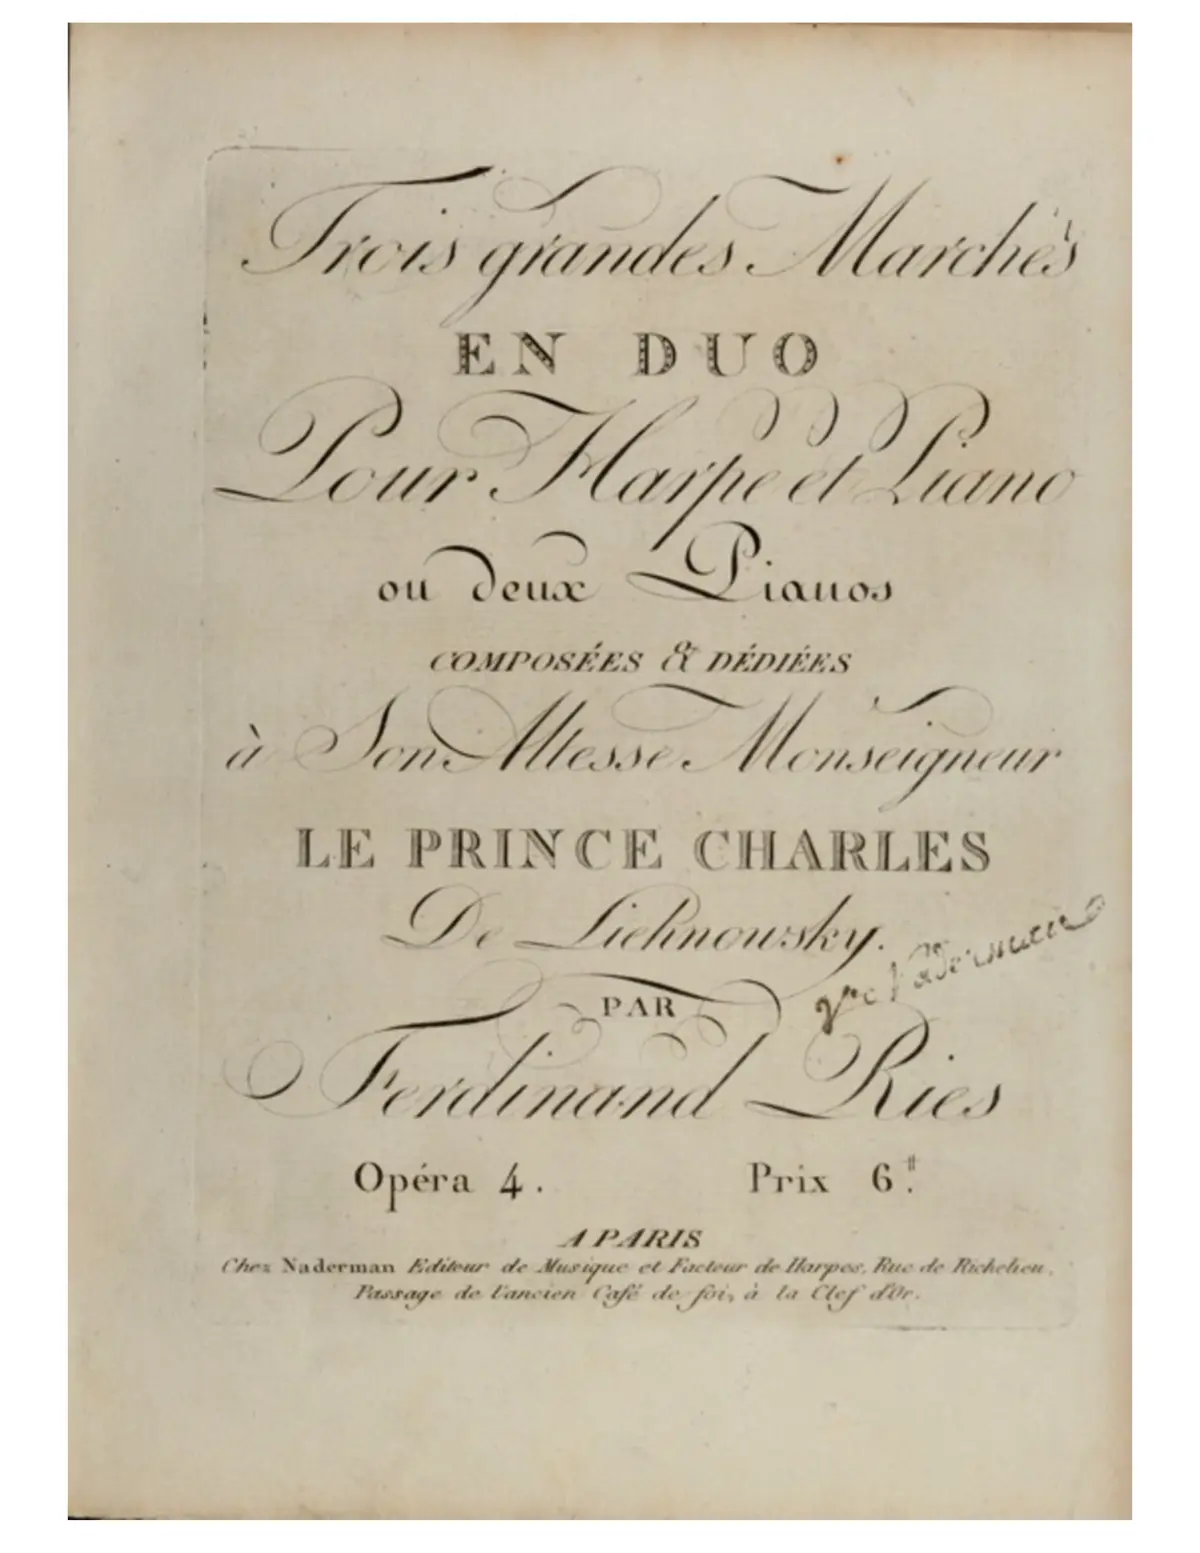 Trois grandes Marchés
EN DUO
Pour Harpe et Piano
ou deux Pianos
COMPOSÉES & DÉDIÉES
à Son Altesse Monseigneur
LE PRINCE CHARLES
De Lichnowsky.
Vve Naderman
PAR
Ferdinand Ries
Opéra 4. Prix 6.#
A PARIS
Chez Naderman Editeur de Musique et Facteur de Harpes, Rue de Richelieu,
Passage de l'ancien Café de foi, à la Clef d'Or.